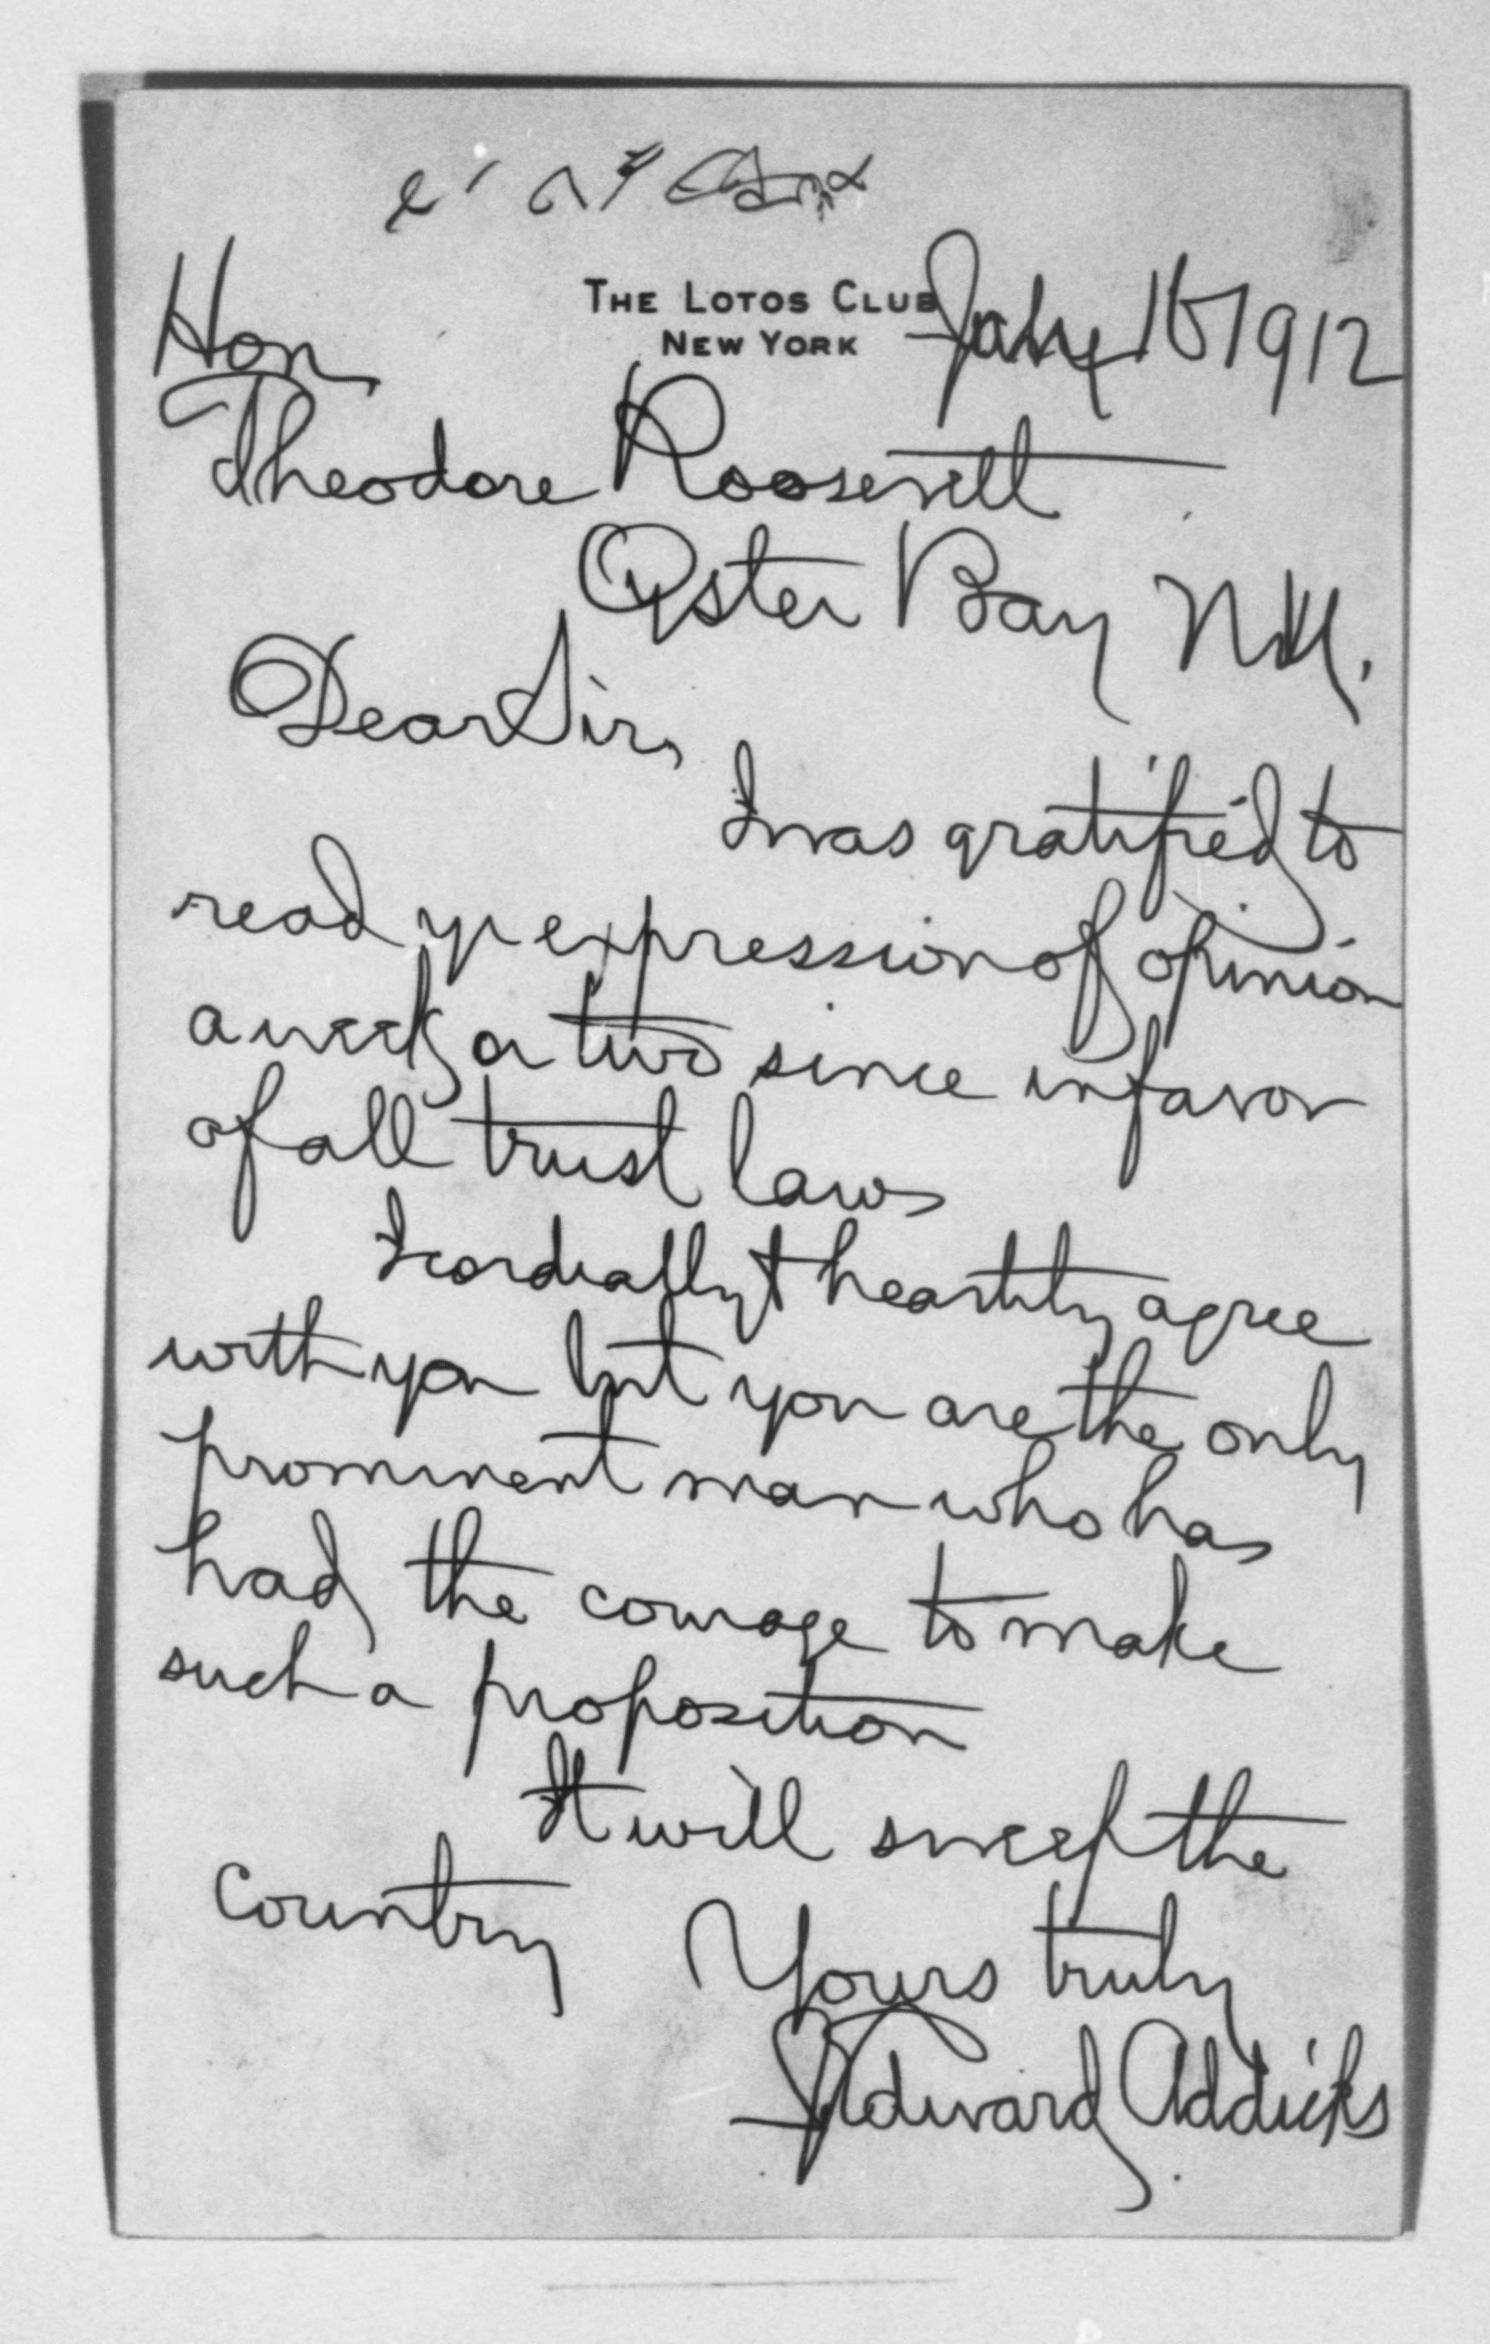 The Lotos Club
New York
July 16 1912
Hon
Theodore Roosevelt
Oyster Bay N.Y.
Dear Sir,
I was gratified to
read yr expression of opinion
a week or two since in favor
of all trust laws
I cordially & heartily agree
with you but you are the only
prominent man who has
had the courage to make
such a proposition
It will sweep the
country
Yours truly
J Edward Addicks